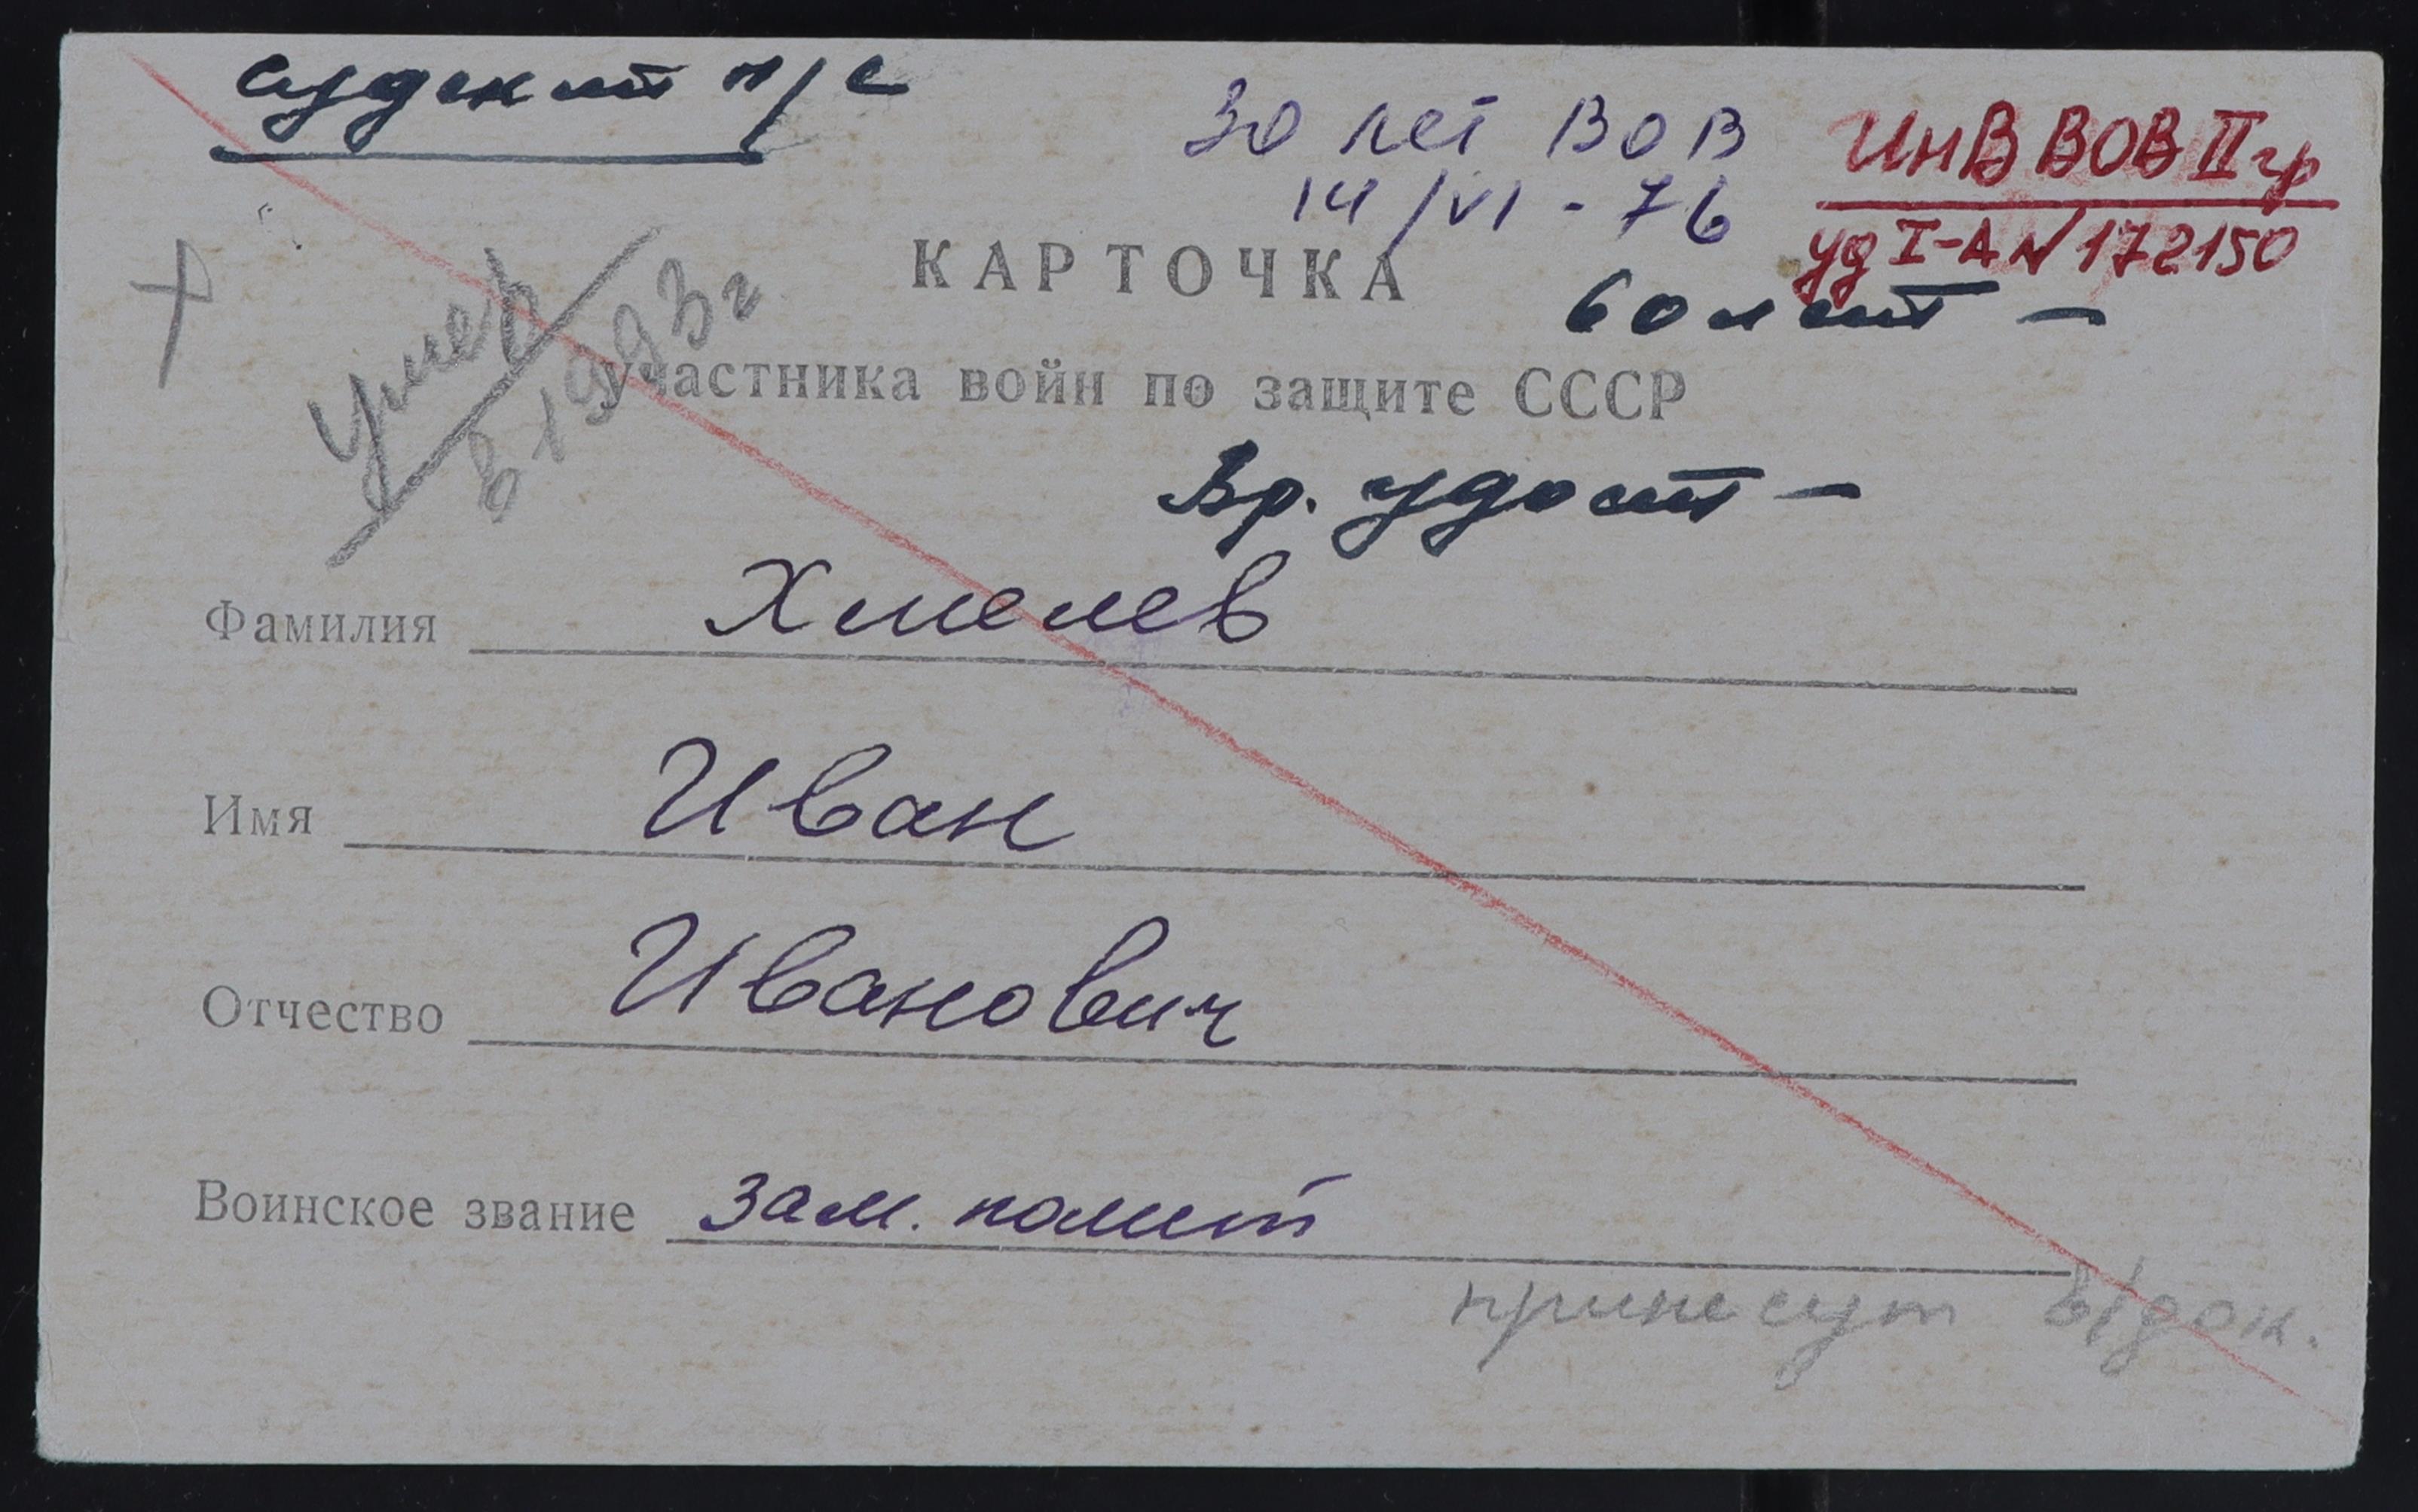 Судский п/с
30 лет ВОВ
14/VI - 76
ИнВ ВОВ II гр
уд I-А № 172150
КАРТОЧКА
60 лет –
участника войн по защите СССР
Умер
в 1993 г
Вр. удост –
Фамилия Хмелев
Имя Иван
Отчество Иванович
Воинское звание зам. полит
принесут в/док.